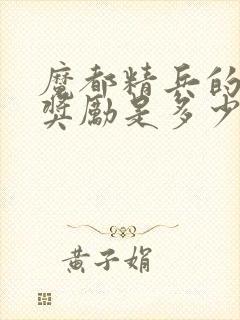 魔都精兵的
奖励是多少
黄子娟